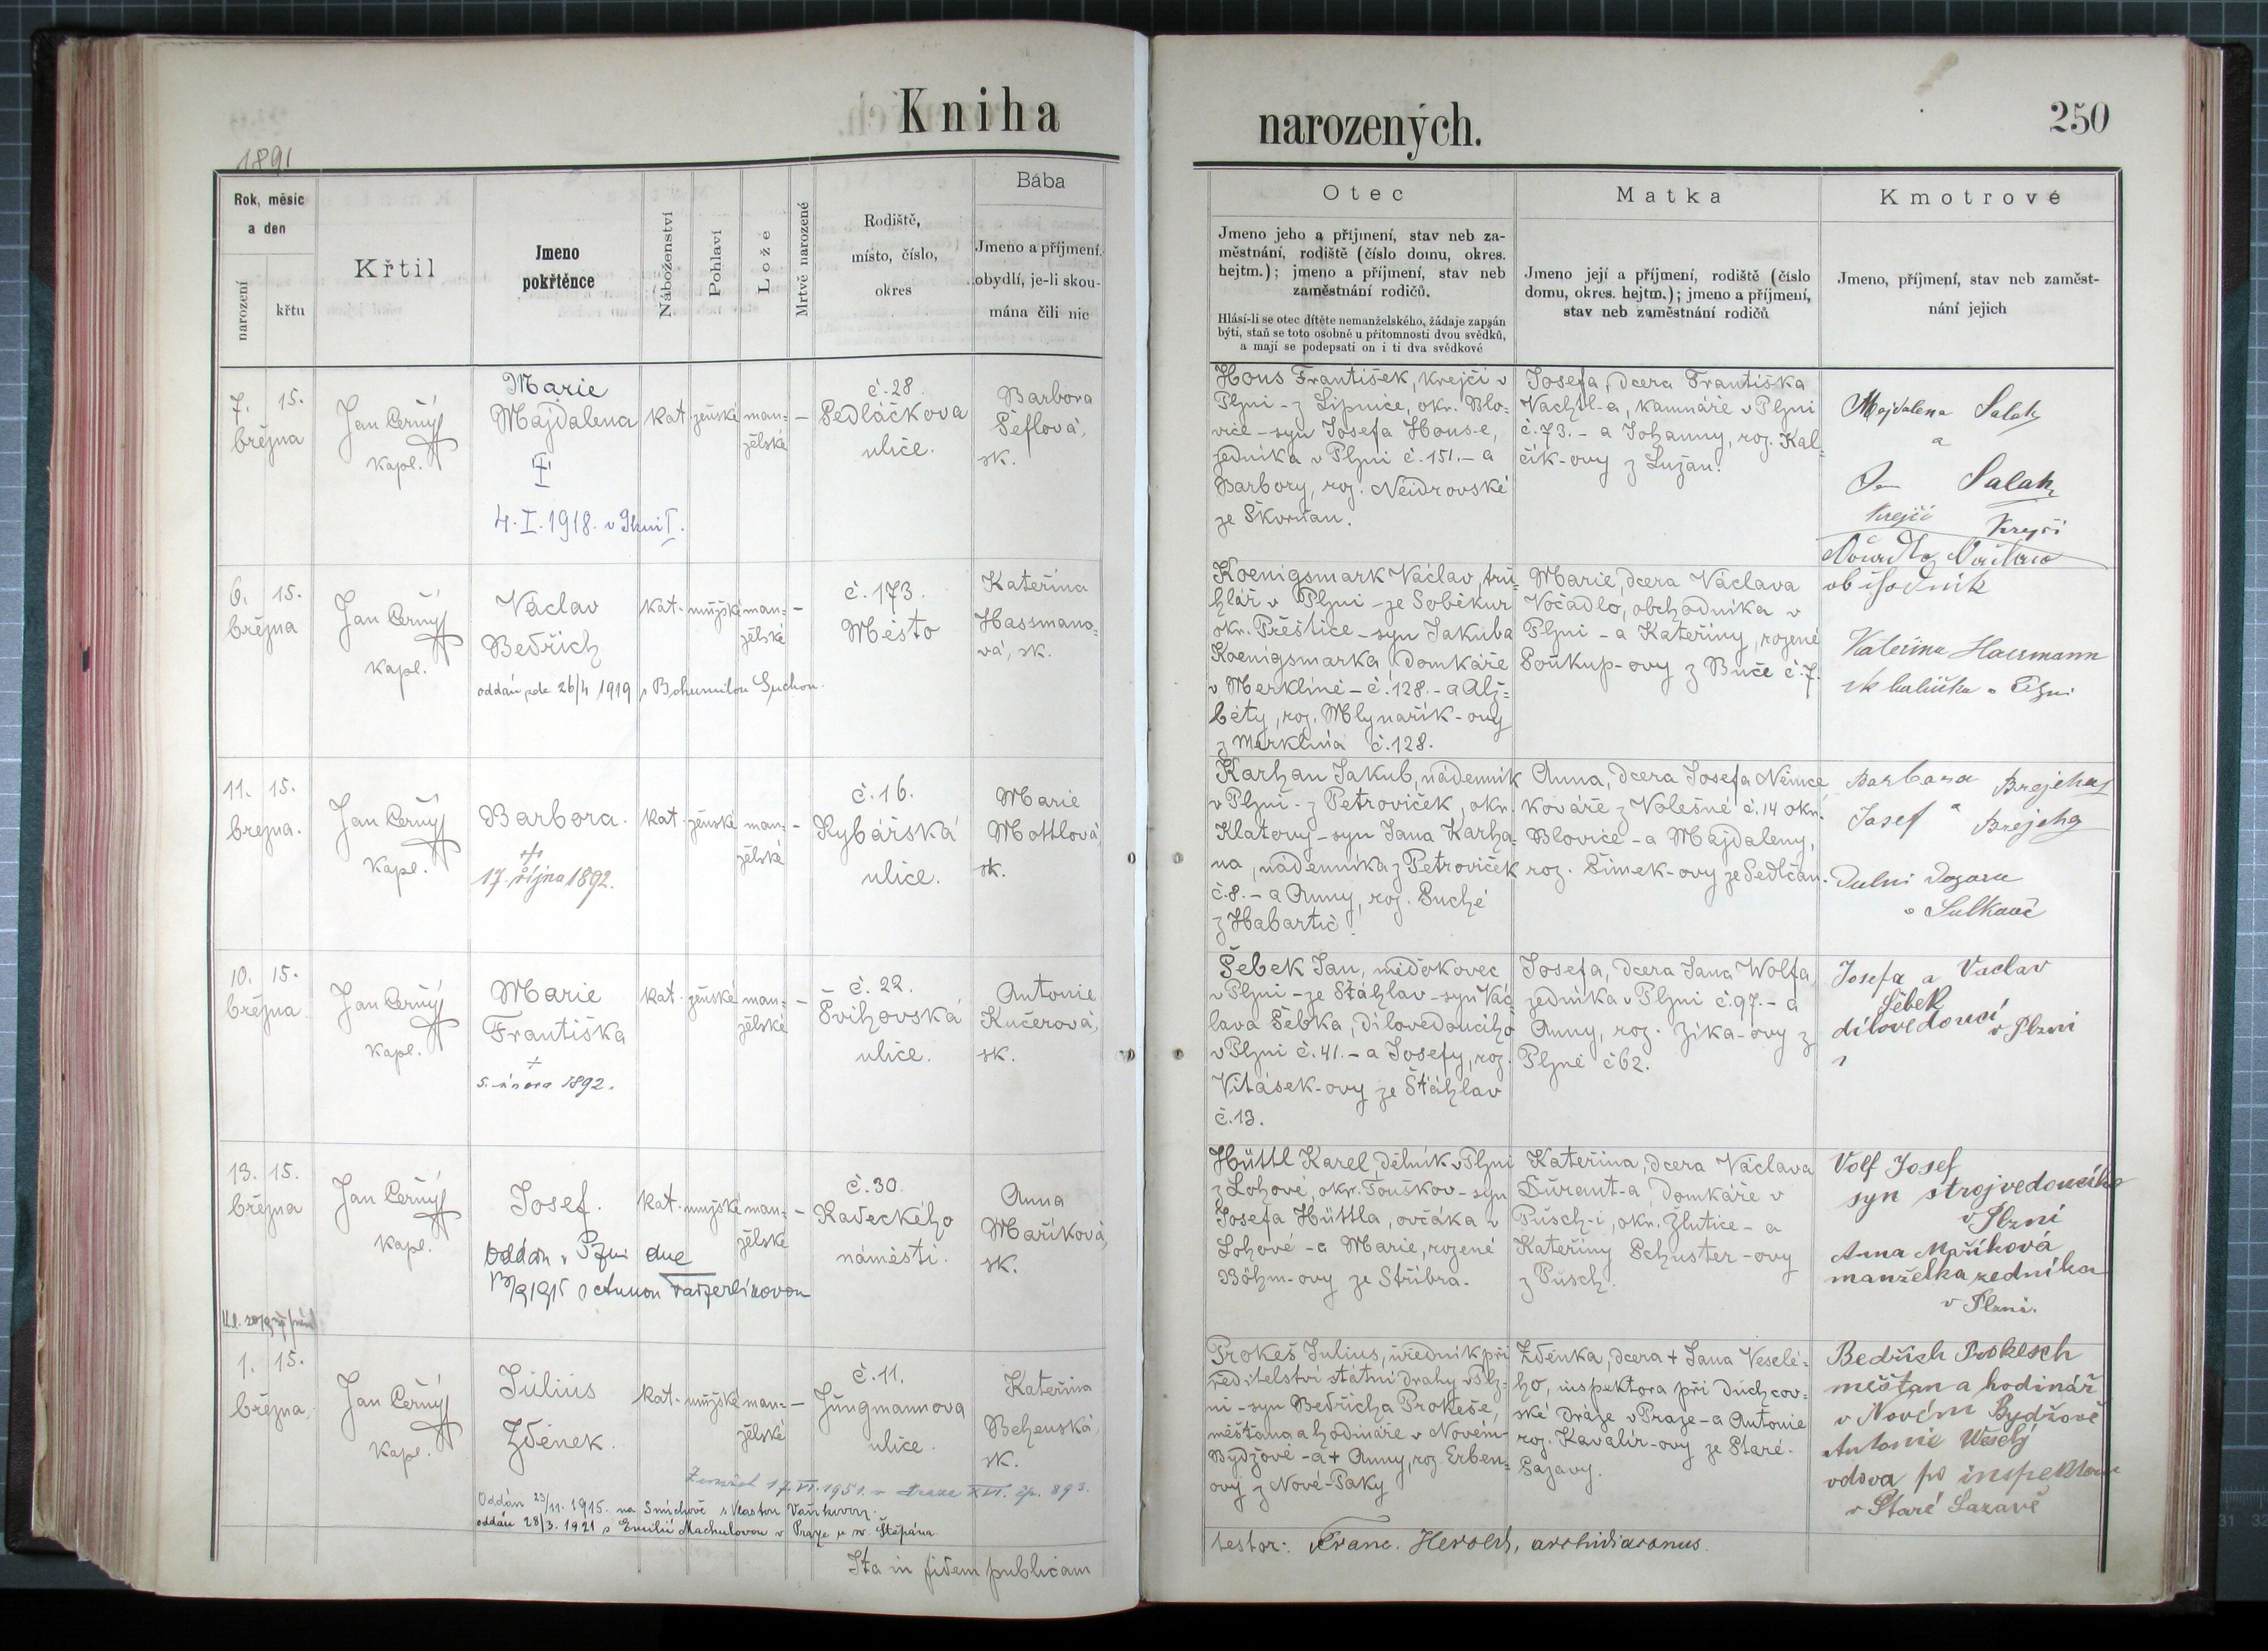 Kniha
narozených.
250
1891
Rok, měsíc
a den
narození
křtu
Křtil
Jmeno
pokřtěnce
Náboženství
Pohlaví
Lože
Mrtvě narozené
Rodiště,
místo, číslo,
okres
Bába
Jmeno a příjmení,
obydlí, je-li skou-
mána čili nic
Otec
Jmeno jeho a příjmení, stav neb za-
městnání, rodiště (číslo domu, okres.
hejtm.); jmeno a příjmení, stav neb
zaměstnání rodičů.
Hlásí-li se otec dítěte nemanželského, žádaje zapsán
býti, staň se toto osobně u přítomnosti dvou svědků,
a mají se podepsati on i ti dva svědkové
Matka
Jmeno její a příjmení, rodiště (číslo
domu, okres. hejtm.); jmeno a příjmení,
stav neb zaměstnání rodičů
Kmotrové
Jmeno, příjmení, stav neb zaměst-
nání jejich
7. 15.
března
Jan Černý
kapl.
Marie
Majdalena
4. I. 1918. v Plzni I.
kat. ženské man=
želské
–
č. 28.
Sedláčkova
ulice.
Barbora
Šeflová,
sk.
Hous František, krejčí v
Plzni – z Lipnice, okr. Blo=
vice – syn Josefa Hous-e,
zedníka v Plzni č. 151. – a
Barbory, roz. Neidrovské
ze Škvrňan.
Josefa, dcera Františka
Vachtl-a, kamnáře v Plzni
č. 73. – a Johanny, roz. Kal=
čík-ovy z Lužan.
Majdalena Salak
a
Salak
Krejčí Krejčí
6. 15.
března
Jan Černý
kapl.
Václav
Bedřich
oddán dne 26/4 1919 s Bohumilou Suchou.
kat. mužské man=
želské
–
č. 173.
Město
Kateřina
Hassmano=
vá, sk.
Koenigsmark Václav, tru=
hlář v Plzni – ze Soběkur
okr. Přeštice – syn Jakuba
Koenigsmarka, domkáře
v Merklíně – č. 128. – a Alž=
běty, roz. Mlynařík-ovy
z Merklína č. 128.
Marie, dcera Václava
Vočadlo, obchodníka v
Plzni – a Kateřiny, rozené
Soukup-ovy z Buče č. 7.
Vočadlo Václav
obchodník
Kateřina Hassmann
v Plzni
11. 15.
března.
Jan Černý
kapl.
Barbora.
+
17. října 1892.
kat. ženské man=
želské
–
č. 16.
Rybářská
ulice.
Marie
Mottlová,
sk.
Karhan Jakub, nádenník
v Plzni – z Petroviček, okr.
Klatovy – syn Jana Karha=
na, nádenníka z Petroviček
č. 8. – a Anny, roz. Suché
z Habartic.
Anna, dcera Josefa Němce
kováře z Volešné č. 14 okr.
Blovice – a Majdaleny,
roz. Šimek-ovy ze Sedlčan.
Barbara Brejcha
a
Josef Brejcha
Dulni
v Sulkově
10. 15.
března
Jan Černý
kapl.
Marie
Františka
+
5. února 1892.
kat. ženské man=
želské
–
č. 22.
Švihovská
ulice.
Antonie
Kučerová,
sk.
Šebek Jan, mědokovec
v Plzni – ze Štáhlav – syn Vác
lava Šebka, dílovedoucího
v Plzni č. 41. – a Josefy, roz.
Vitásek-ovy ze Štáhlav
č. 13.
Josefa, dcera Jana Wolfa,
zedníka v Plzni č. 97. – a
Anny, roz. Zíka-ovy z
Plzně č 62.
Josefa a Vaclav
Šebek
dílovedoucí
v Plzni
13. 15.
března
Jan Černý
kapl.
Josef.
Oddán v Plzni dne
kat. mužské man=
želské
–
č. 30.
Radeckého
náměstí.
Anna
Maříková,
sk.
Hüttl Karel, dělník v Plzni
z Lohové, okr. Touškov – syn
Josefa Hüttla, ovčáka v
Lohové – a Marie, rozené
Böhm-ovy ze Stříbra.
Kateřina, dcera Václava
Durant-a, domkáře v
Pusch-i, okr. Žlutice – a
Kateřiny Schuster-ovy
z Pusch.
Volf Josef
syn strojvedoucího
v Plzni
Anna Maříková
manželka zedníka
v Plzni.
1. 15.
března
Jan Černý
kapl.
Julius
Zdeněk.
kat. mužské man=
želské
–
č. 11.
Jungmannova
ulice.
Kateřina
Behenská,
sk.
Zemřel 17. VI. 1951. v Praze XVI. čp. 893.
Oddán 23/11. 1915. na Smíchově s Vlastou Vaňkovou.
oddán 28/3. 1921 s Emilií Machulovou v Praze u sv. Štěpána.
Prokeš Julius, úředník při
ředitelství státní dráhy v Plz=
ni – syn Bedřicha Prokeše,
měšťana a hodináře v Novém
Bydžově – a + Anny, roz. Erben=
ovy z Nové-Paky
Zdeňka, dcera + Jana Veselé=
ho, inspektora při duchcov=
ské dráze v Praze – a Antonie
roz. Kavalír-ovy ze Staré-
Sazavy.
Bedřich Prokesch
měšťan a hodinář
v Novém Bydžově
Antonie Veselý
vdova po inspektoru
v Staré Sazavě
Ita in fidem publicam
testor: Franc. Herold, archidiaconus.